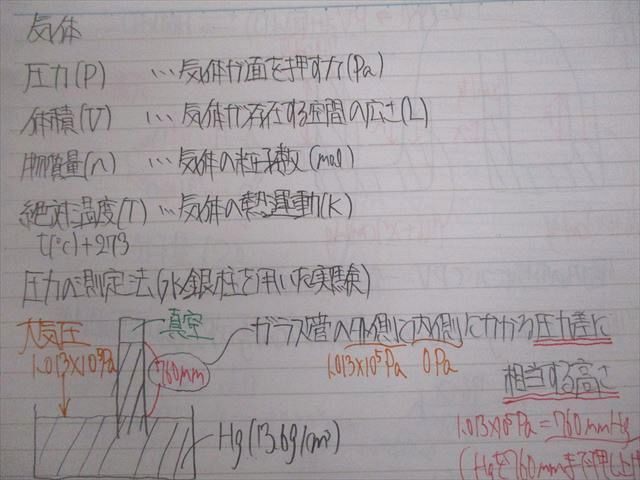 気体
圧力(P) …気体が面を押す力(Pa)
体積(V) …気体が存在する空間の広さ(L)
物質量(n) …気体の粒子数(mol)
絶対温度(T) …気体の熱運動(K)
t(℃)+273
圧力の測定法(水銀柱を用いた実験)
大気圧
1.013×10⁵Pa
真空
760mm
ガラス管の外側と内側にかかる圧力差に
1.013×10⁵Pa 0Pa
相当する高さ
Hg(13.6g/cm³)
1.013×10⁵Pa=760mmHg
(Hgを760mmまで押し上げ